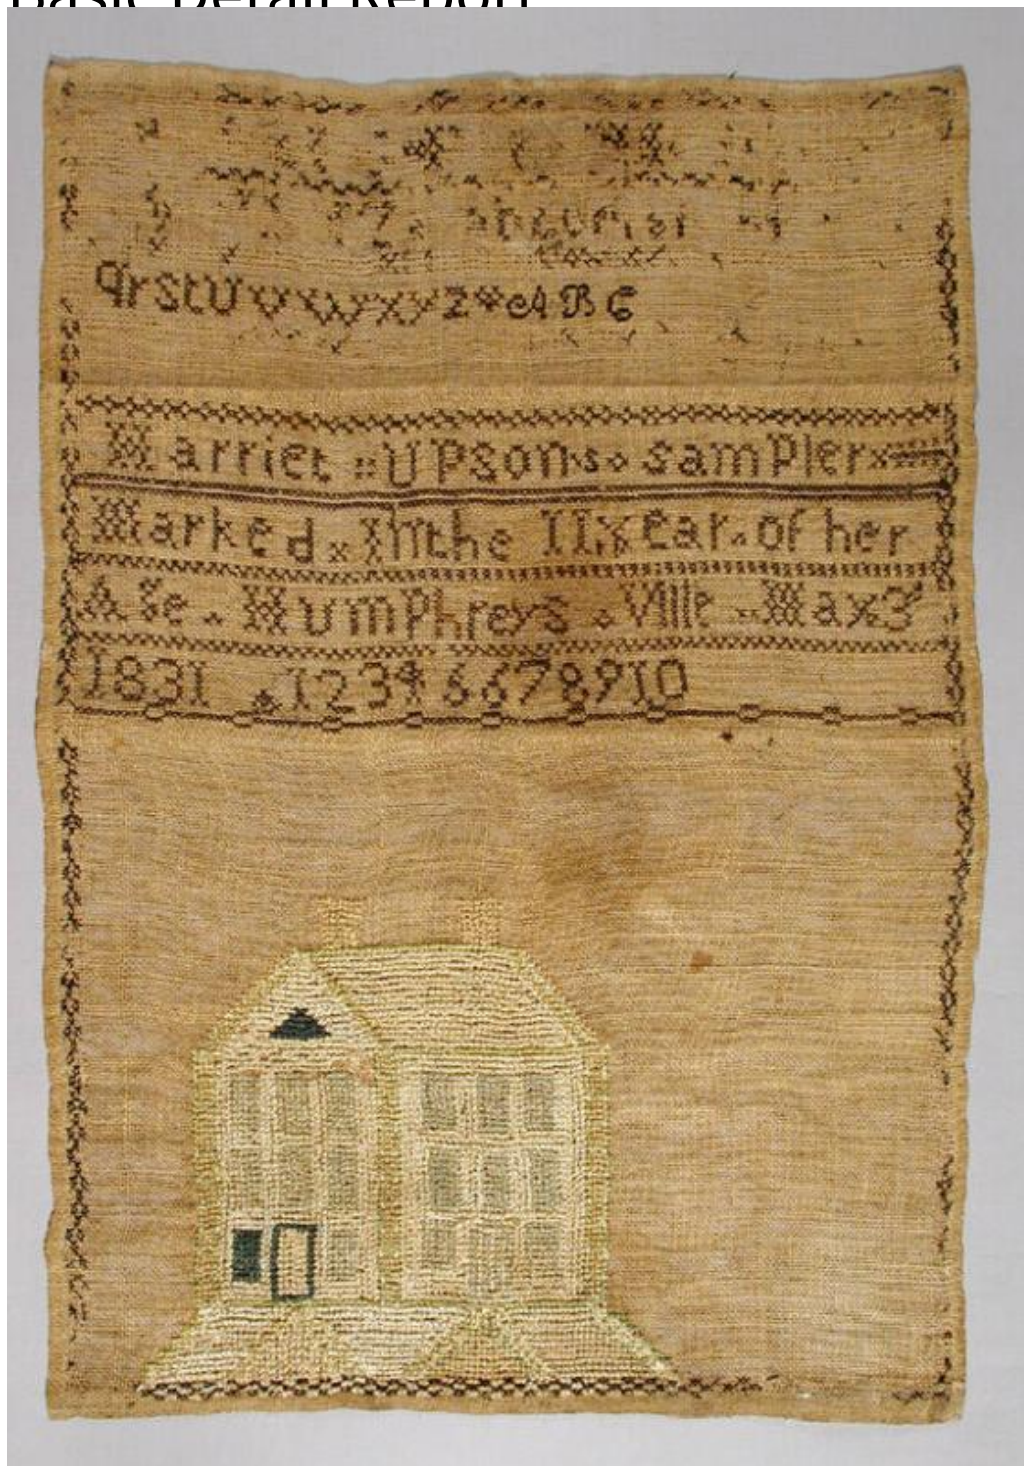 Basic Detail Report
qrstuvwxyz*ABC
Harriet :: Upson.s. sampler
Marked x In the 11 Year. of her
Age . Humphreys . Ville .. May 3
1831 . 1234 6678910